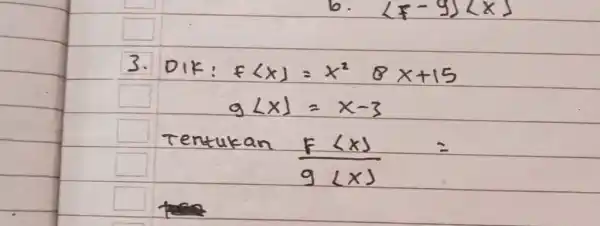 b. (F - g) (x)
3. DIK: F(x) = x² 8x+15
g(x) = x-3
Tentukan F(x) =
g(x)